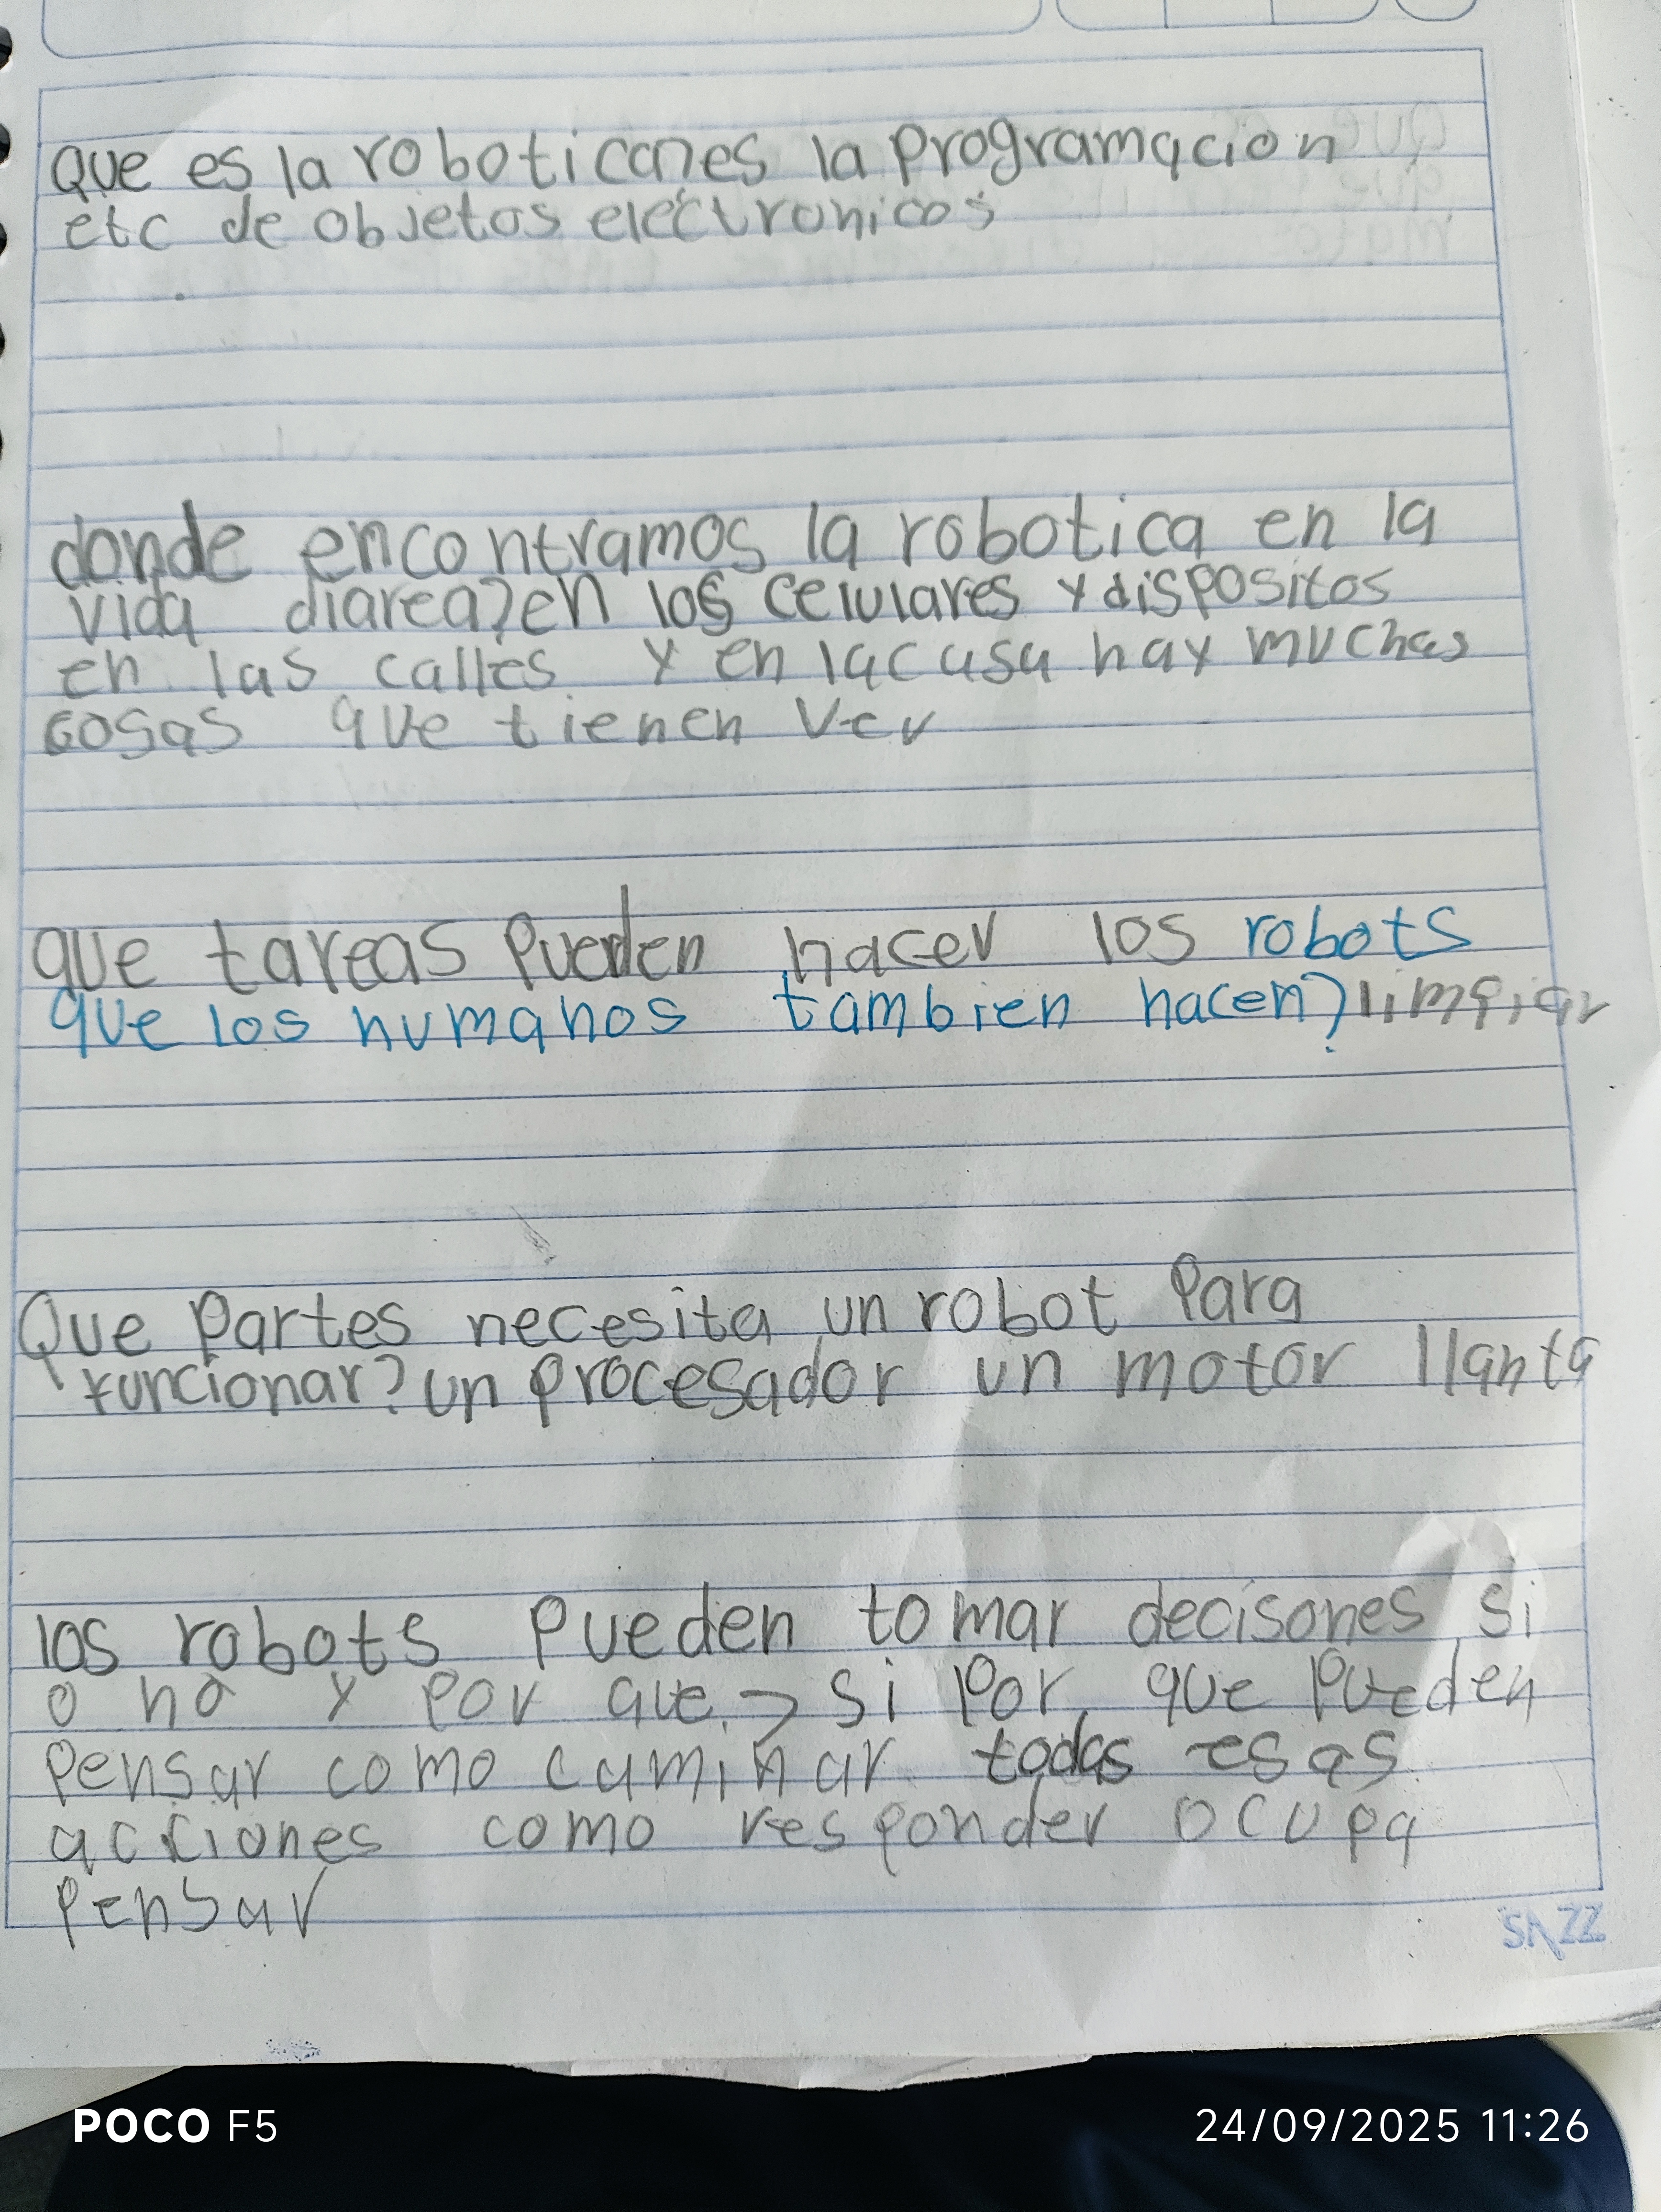 Que es la robotica?es la programacion
etc de objetos electronicos
donde encontramos la robotica en la
vida diarea?en los celulares y dispositos
en las calles y en la casa hay muchas
cosas que tienen ver
que tareas pueden hacer los robots
que los humanos tambien hacen?limpiar
Que partes necesita un robot para
funcionar?un procesador un motor llanta
los robots pueden tomar decisones si
o no y por que? si por que pueden
pensar como caminar todas esas
acciones como responder ocupa
pensar
SAZZ
POCO F5
24/09/2025 11:26